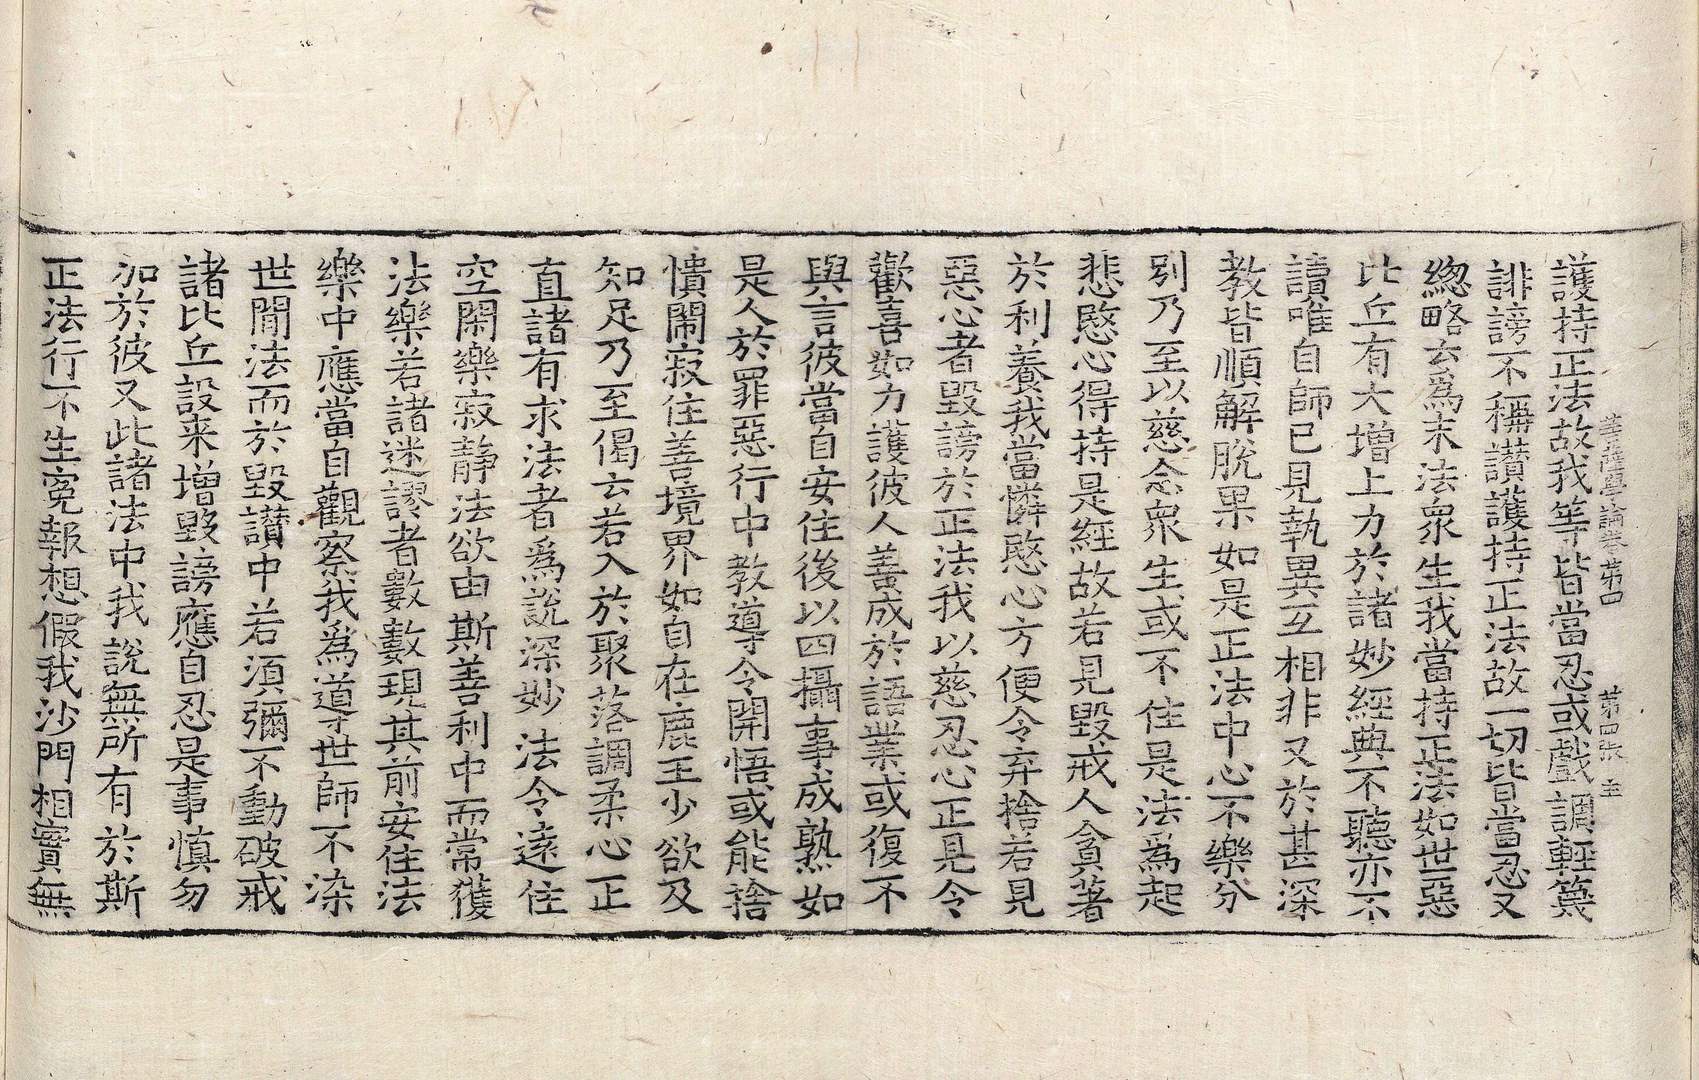 菩薩學論卷第四　第四張　主
護持正法故我等皆當忍或戲調輕篾
誹謗不稱讃護持正法故一切皆當忍又
緫略云爲末法衆生我當持正法如世惡
比丘有大增上力於諸妙經典不聽亦不
讀唯自師已見執異互相非又於甚深
教皆順解脫果如是正法中心不樂分
別乃至以慈念衆生或不住是法爲起
悲愍心得持是經故若見毀戒人貪著
於利養我當憐愍心方便令弃捨若見
惡心者毀謗於正法我以慈忍心正見令
歡喜如力護彼人善成於語業或復不
與言彼當自安住後以四攝事成熟如
是人於罪惡行中教導令開悟或能捨
憒鬧寂住善境界如自在鹿王少欲及
知足乃至偈云若入於聚落調柔心正
直諸有求法者爲說深妙法令遠住
空閑樂寂静法欲由斯善利中而常獲
法樂若諸迷謬者數數現其前安住法
樂中應當自觀察我爲導世師不染
世間法而於毀讃中若須彌不動破戒
諸比丘設来增毀謗應自忍是事慎勿
加於彼又此諸法中我說無所有於斯
正法行不生寃報想假我沙門相實無